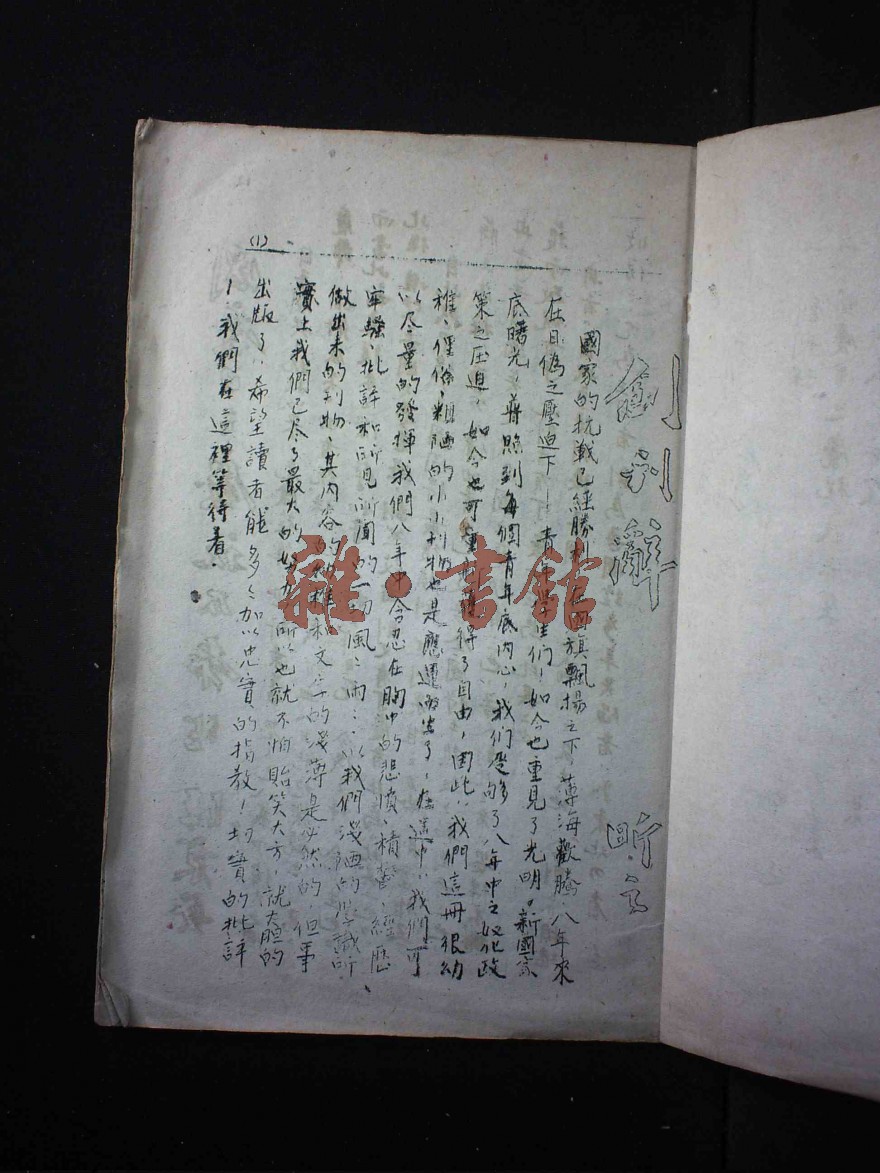 創刊辭
昕雲
國家的抗戰已經勝利在國旗飄揚之下,薄海歡騰八年來
在日偽之壓迫下!青年學生們!如今也重見了光明。新國家
底曙光,普照到每個青年底內心,我們受够了八年中之奴化政
策之压迫,如今也可重新獲得了自由,因此,我們這冊很幼
稚、僅係粗陋的小小刊物也是應運而生了,在這中,我們可
以尽量的發揮我們八年中含忍在胸中的悲憤、積鬱,經歷
牢騷、批評和所見所聞的一切風風雨雨..以我們淺陋的學識所
做出来的刊物,其内容的幼稚和文字的淺薄是必然的,但事
實上我們已尽了最大的努力,所以也就不怕貽笑大方,就大胆的
出版了,希望讀者能多多加以忠實的指教!切實的批評
!我們在這裡等待着.
(1)
雜·書館